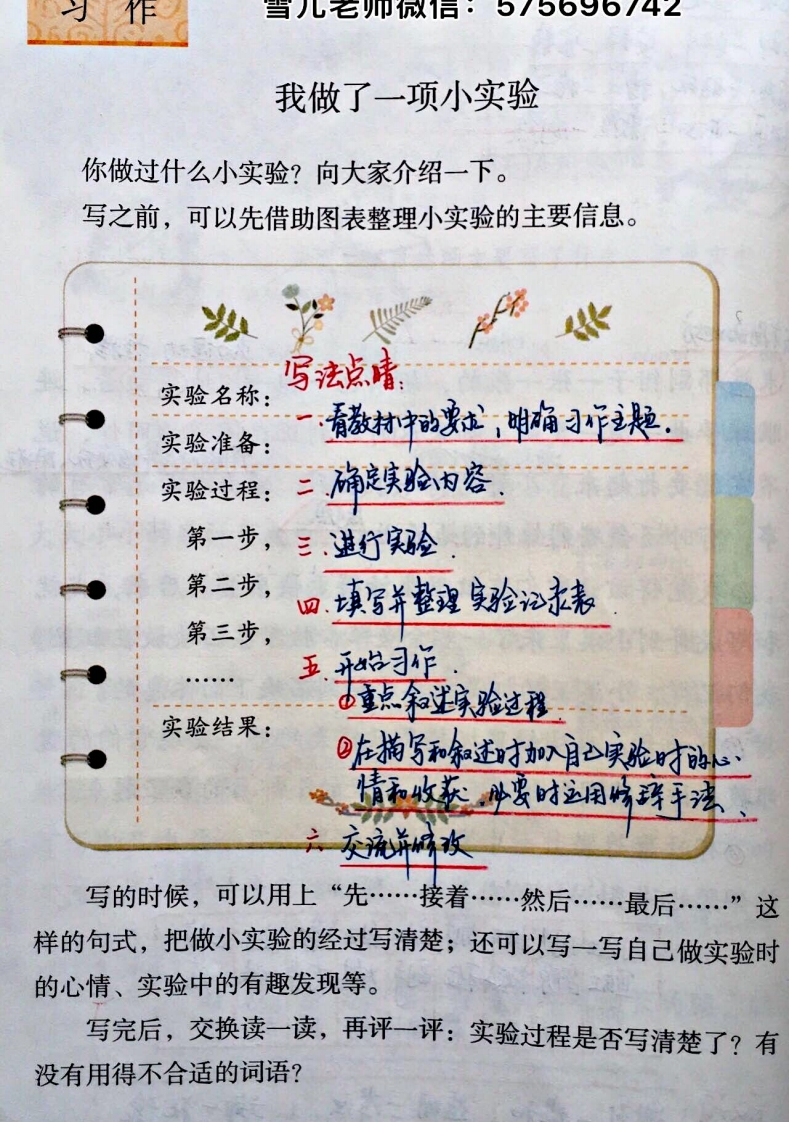 雪儿老师微信：575696742
习 作
我做了一项小实验
你做过什么小实验？向大家介绍一下。
写之前，可以先借助图表整理小实验的主要信息。
写法点晴：
实验名称：
一. 看教材中的要求，明确习作主题.
实验准备：
实验过程：
二. 确定实验内容.
第一步，
三. 进行实验.
第二步，
四. 填写并整理实验记录表.
第三步，
五. 开始习作.
……
①重点叙述实验过程.
实验结果：
②在描写和叙述时加入自己实验时的心
情和收获. 必要时运用修辞手法、
六. 交流并修改
写的时候，可以用上“先……接着……然后……最后……”这
样的句式，把做小实验的经过写清楚；还可以写一写自己做实验时
的心情、实验中的有趣发现等。
写完后，交换读一读，再评一评：实验过程是否写清楚了？有
没有用得不合适的词语？